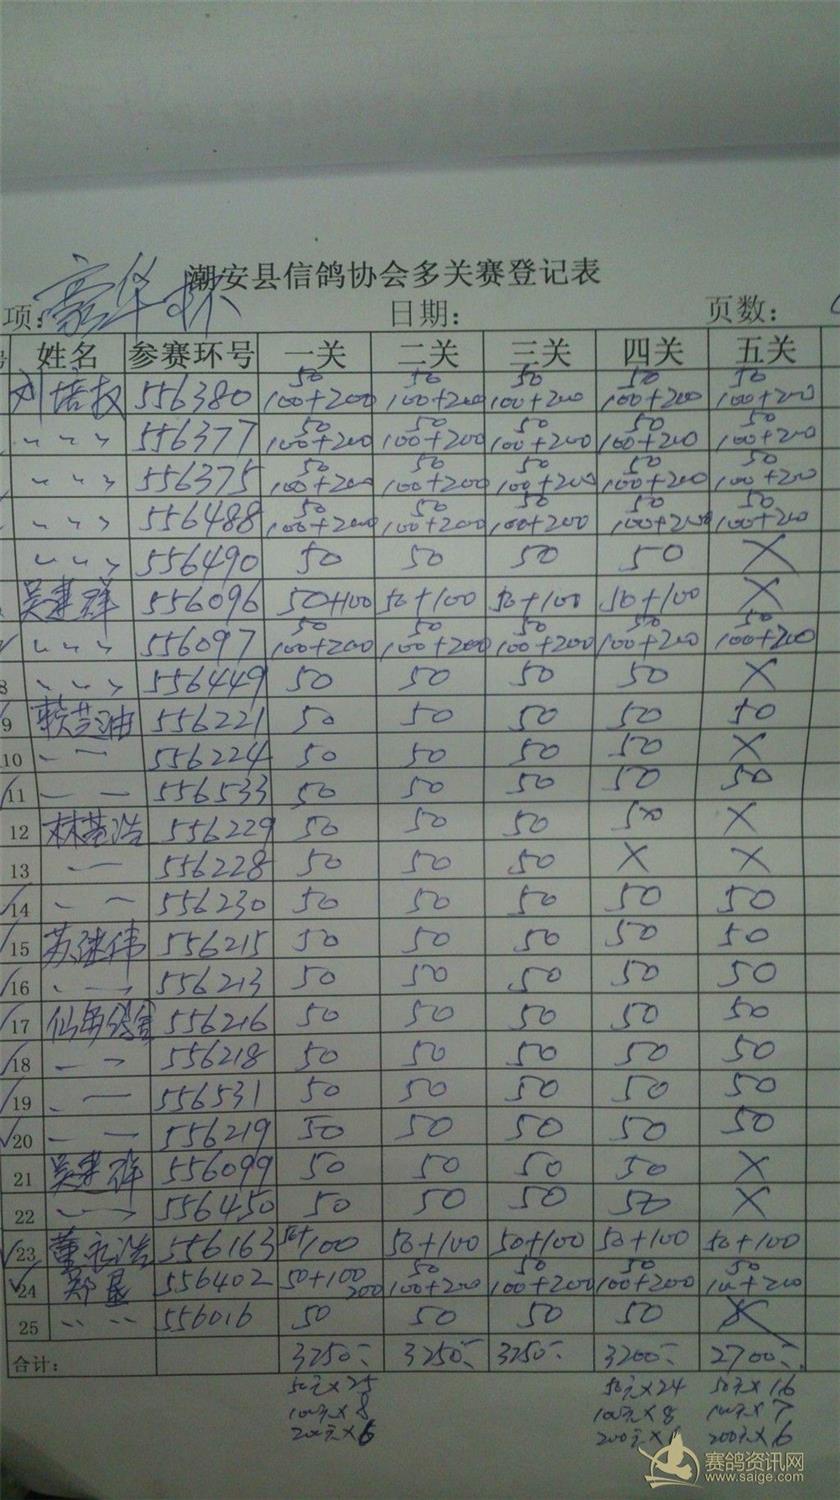 潮安县信鸽协会多关赛登记表
项: 豪华杯 日期: 页数:
号 姓名 参赛环号 一关 二关 三关 四关 五关
刘培权 556380 50 100+200 50 100+200 50 100+200 50 100+200 50 100+200
〃 〃 〃 556377 50 100+200 50 100+200 50 100+200 50 100+200 50 100+200
〃 〃 〃 556375 50 100+200 50 100+200 50 100+200 50 100+200 50 100+200
〃 〃 〃 556488 50 100+200 50 100+200 50 100+200 50 100+200 50 100+200
〃 〃 〃 556490 50 50 50 50 X
吴建群 556096 50+100 50+100 50+100 50+100 X
〃 〃 〃 556097 50 100+200 50 100+200 50 100+200 50 100+200 50 100+200
8 〃 〃 〃 556449 50 50 50 50 X
9 556221 50 50 50 50 50
10 〃 — 556224 50 50 50 50 X
11 — — 556533 50 50 50 50 50
12 556229 50 50 50 50 X
13 〃 — 556228 50 50 50 X X
14 〃 — 556230 50 50 50 50 50
15 苏继伟 556215 50 50 50 50 50
16 〃 — 556213 50 50 50 50 50
17 556216 50 50 50 50 50
18 — — 556218 50 50 50 50 50
19 〃 — 556531 50 50 50 50 50
20 — — 556219 50 50 50 50 50
21 吴建群 556099 50 50 50 50 X
22 〃 — 556450 50 50 50 50 X
23 董永浩 556163 50+100 50+100 50+100 50+100 50+100
24 郑昼 556402 50+100 200 50 100+200 50 100+200 50 100+200 50 100+200
25 〃 〃 556016 50 50 50 50 X
合计: 3250- 3250- 3250- 3200- 2700-
50元×25 50元×24 50元×16
100元×8 100元×8 100元×7
200元×6 200元×6 200元×6
赛鸽资讯网
www.saige.com